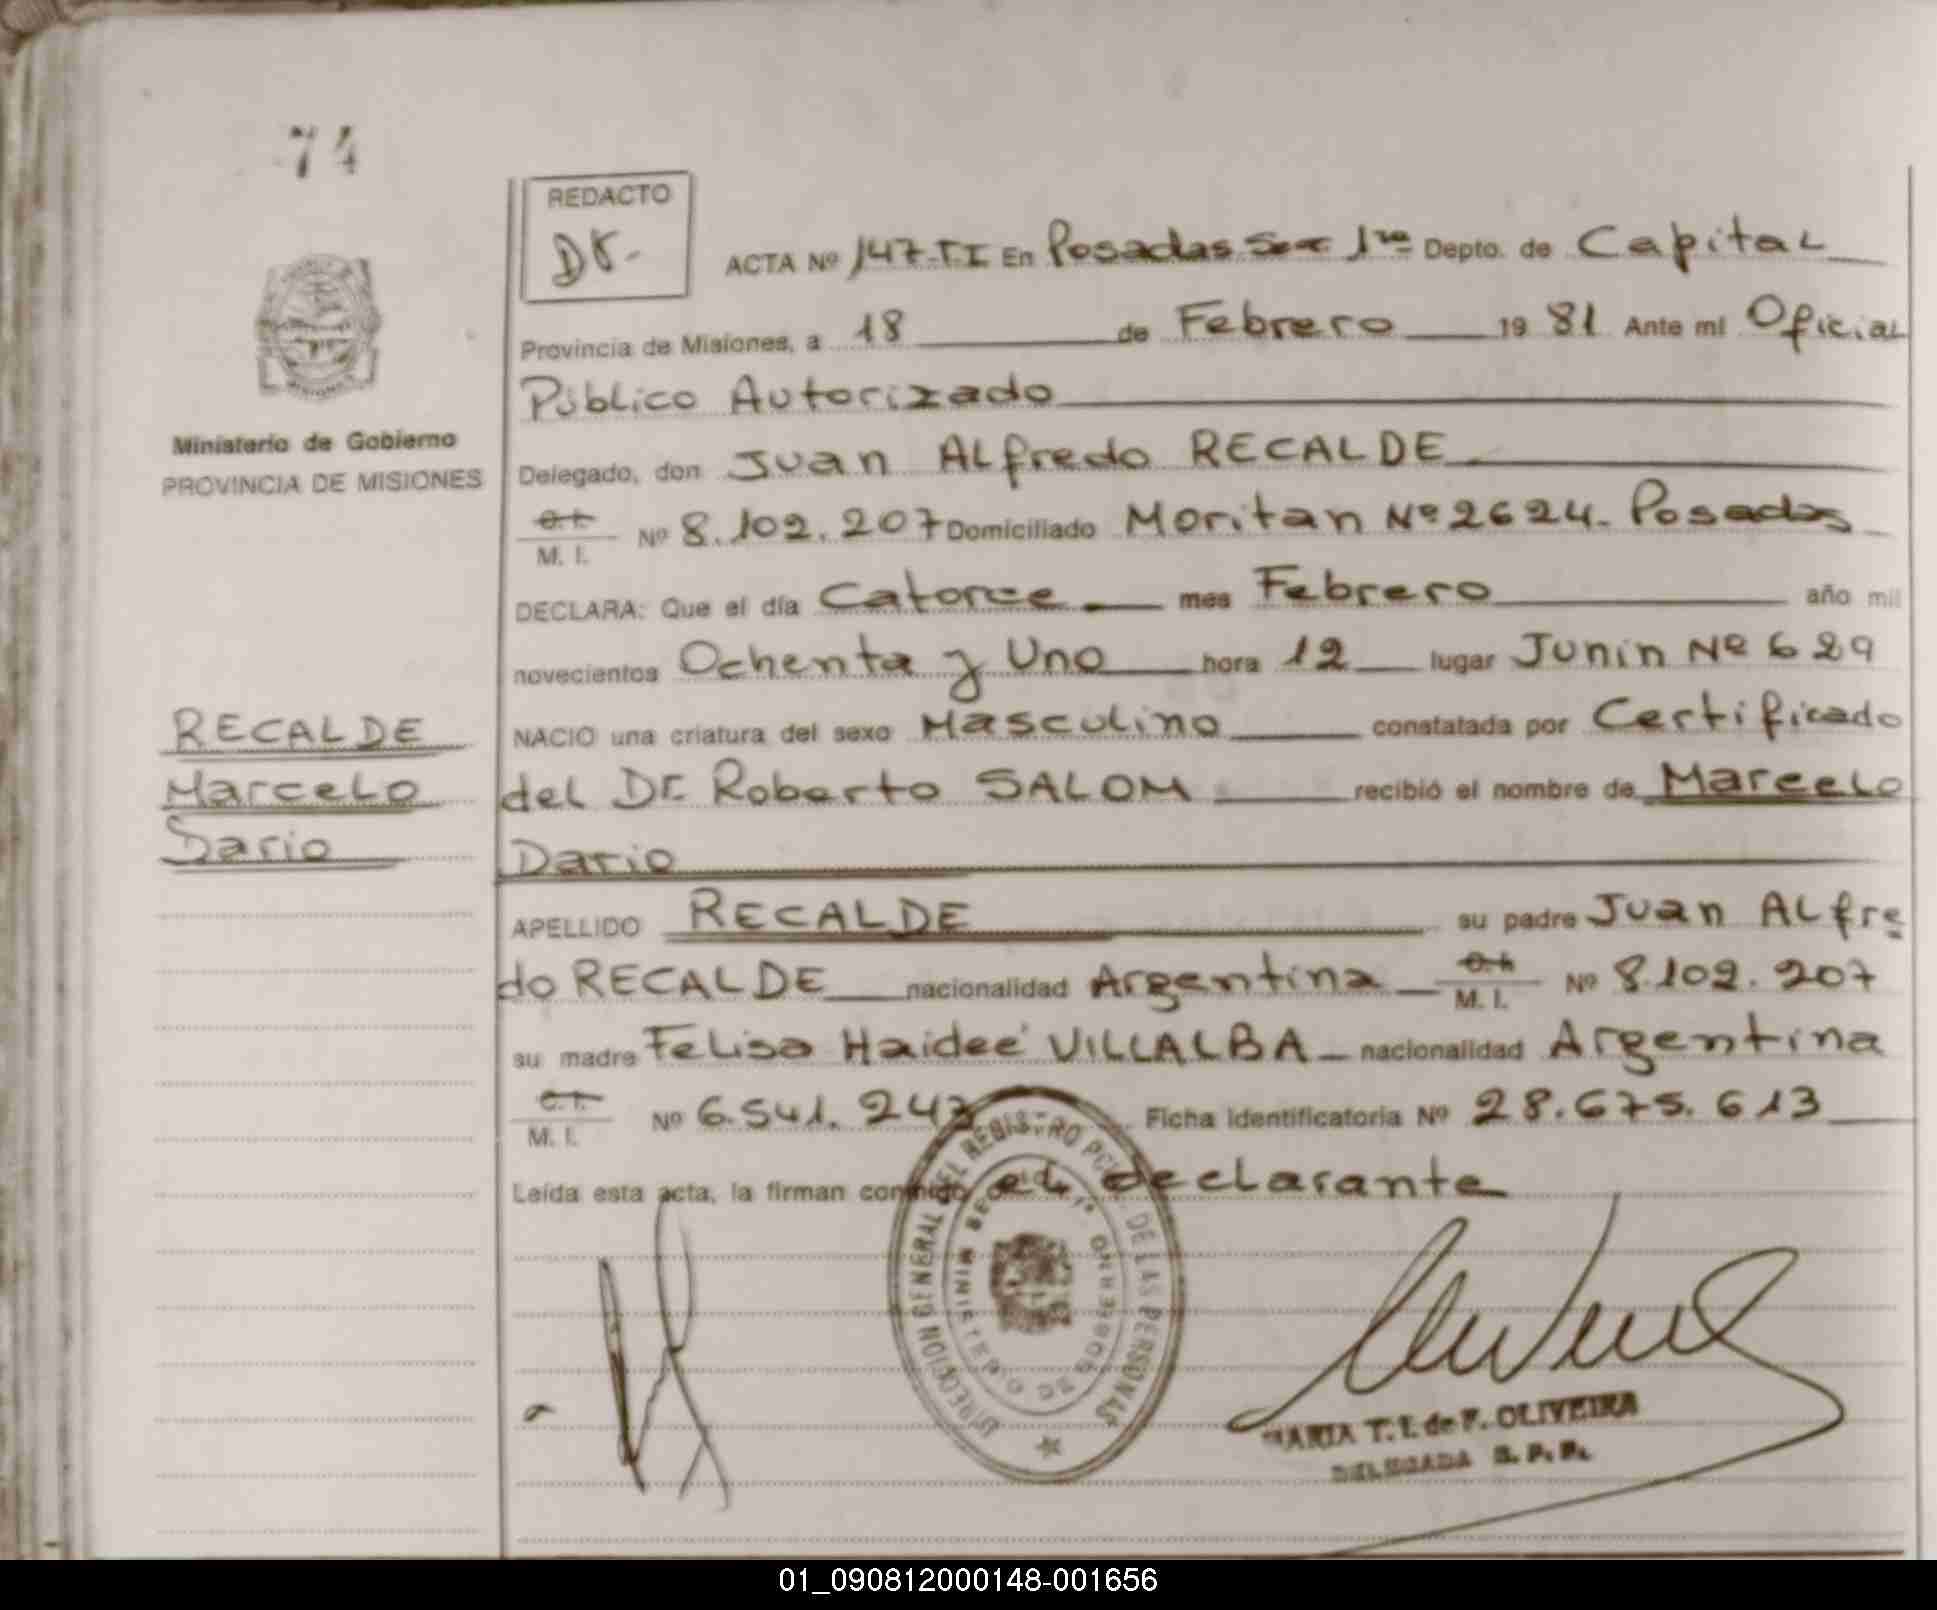 74
REDACTO
ACTA Nº 147-TI En Posadas Sec 1ra Depto. de Capital
Provincia de Misiones, a 18 de Febrero 1981 Ante mí Oficial
Público Autorizado
Delegado, don Juan Alfredo RECALDE
C.I. M. I. Nº 8.102.207 Domiciliado Moritan Nº 2624. Posadas
DECLARA: Que el día Catorce mes Febrero año mil
novecientos Ochenta y Uno hora 12 lugar Junin Nº 629
NACIO una criatura del sexo Masculino constatada por Certificado
del Dr. Roberto SALOM recibió el nombre de Marcelo
Dario
APELLIDO RECALDE su padre Juan Alfre
do RECALDE nacionalidad Argentina C.I. M. I. Nº 8.102.207
su madre Felisa Haideé VILLALBA nacionalidad Argentina
C.I. M. I. Nº 6.541.243 Ficha identificatoria Nº 28.675.613
Leída esta acta, la firman conmigo el declarante
Ministerio de Gobierno
PROVINCIA DE MISIONES
RECALDE
Marcelo
Dario
DIRECCION GENERAL DEL REGISTRO PCIAL. DE LAS PERSONAS
MINISTERIO DE GOBIERNO
MARIA T. I. de F. OLIVEIRA
DELEGADA R. P. P.
01_090812000148-001656